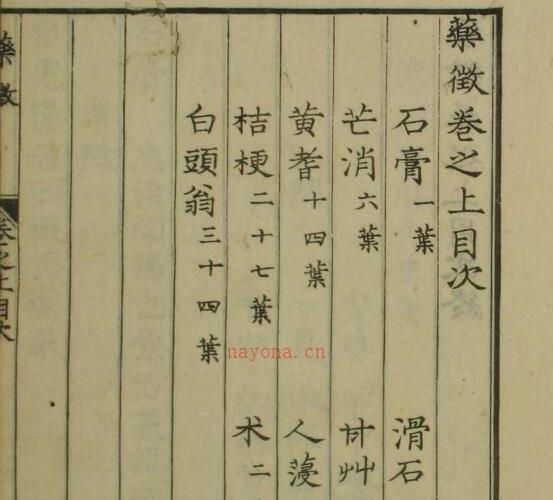 藥徵卷之上目次
石膏一葉 滑石
芒消六葉 甘艸
黄耆十四葉 人薓
桔梗二十七葉 朮二
白頭翁三十四葉
藥徵
卷之上目次
nayona.cn